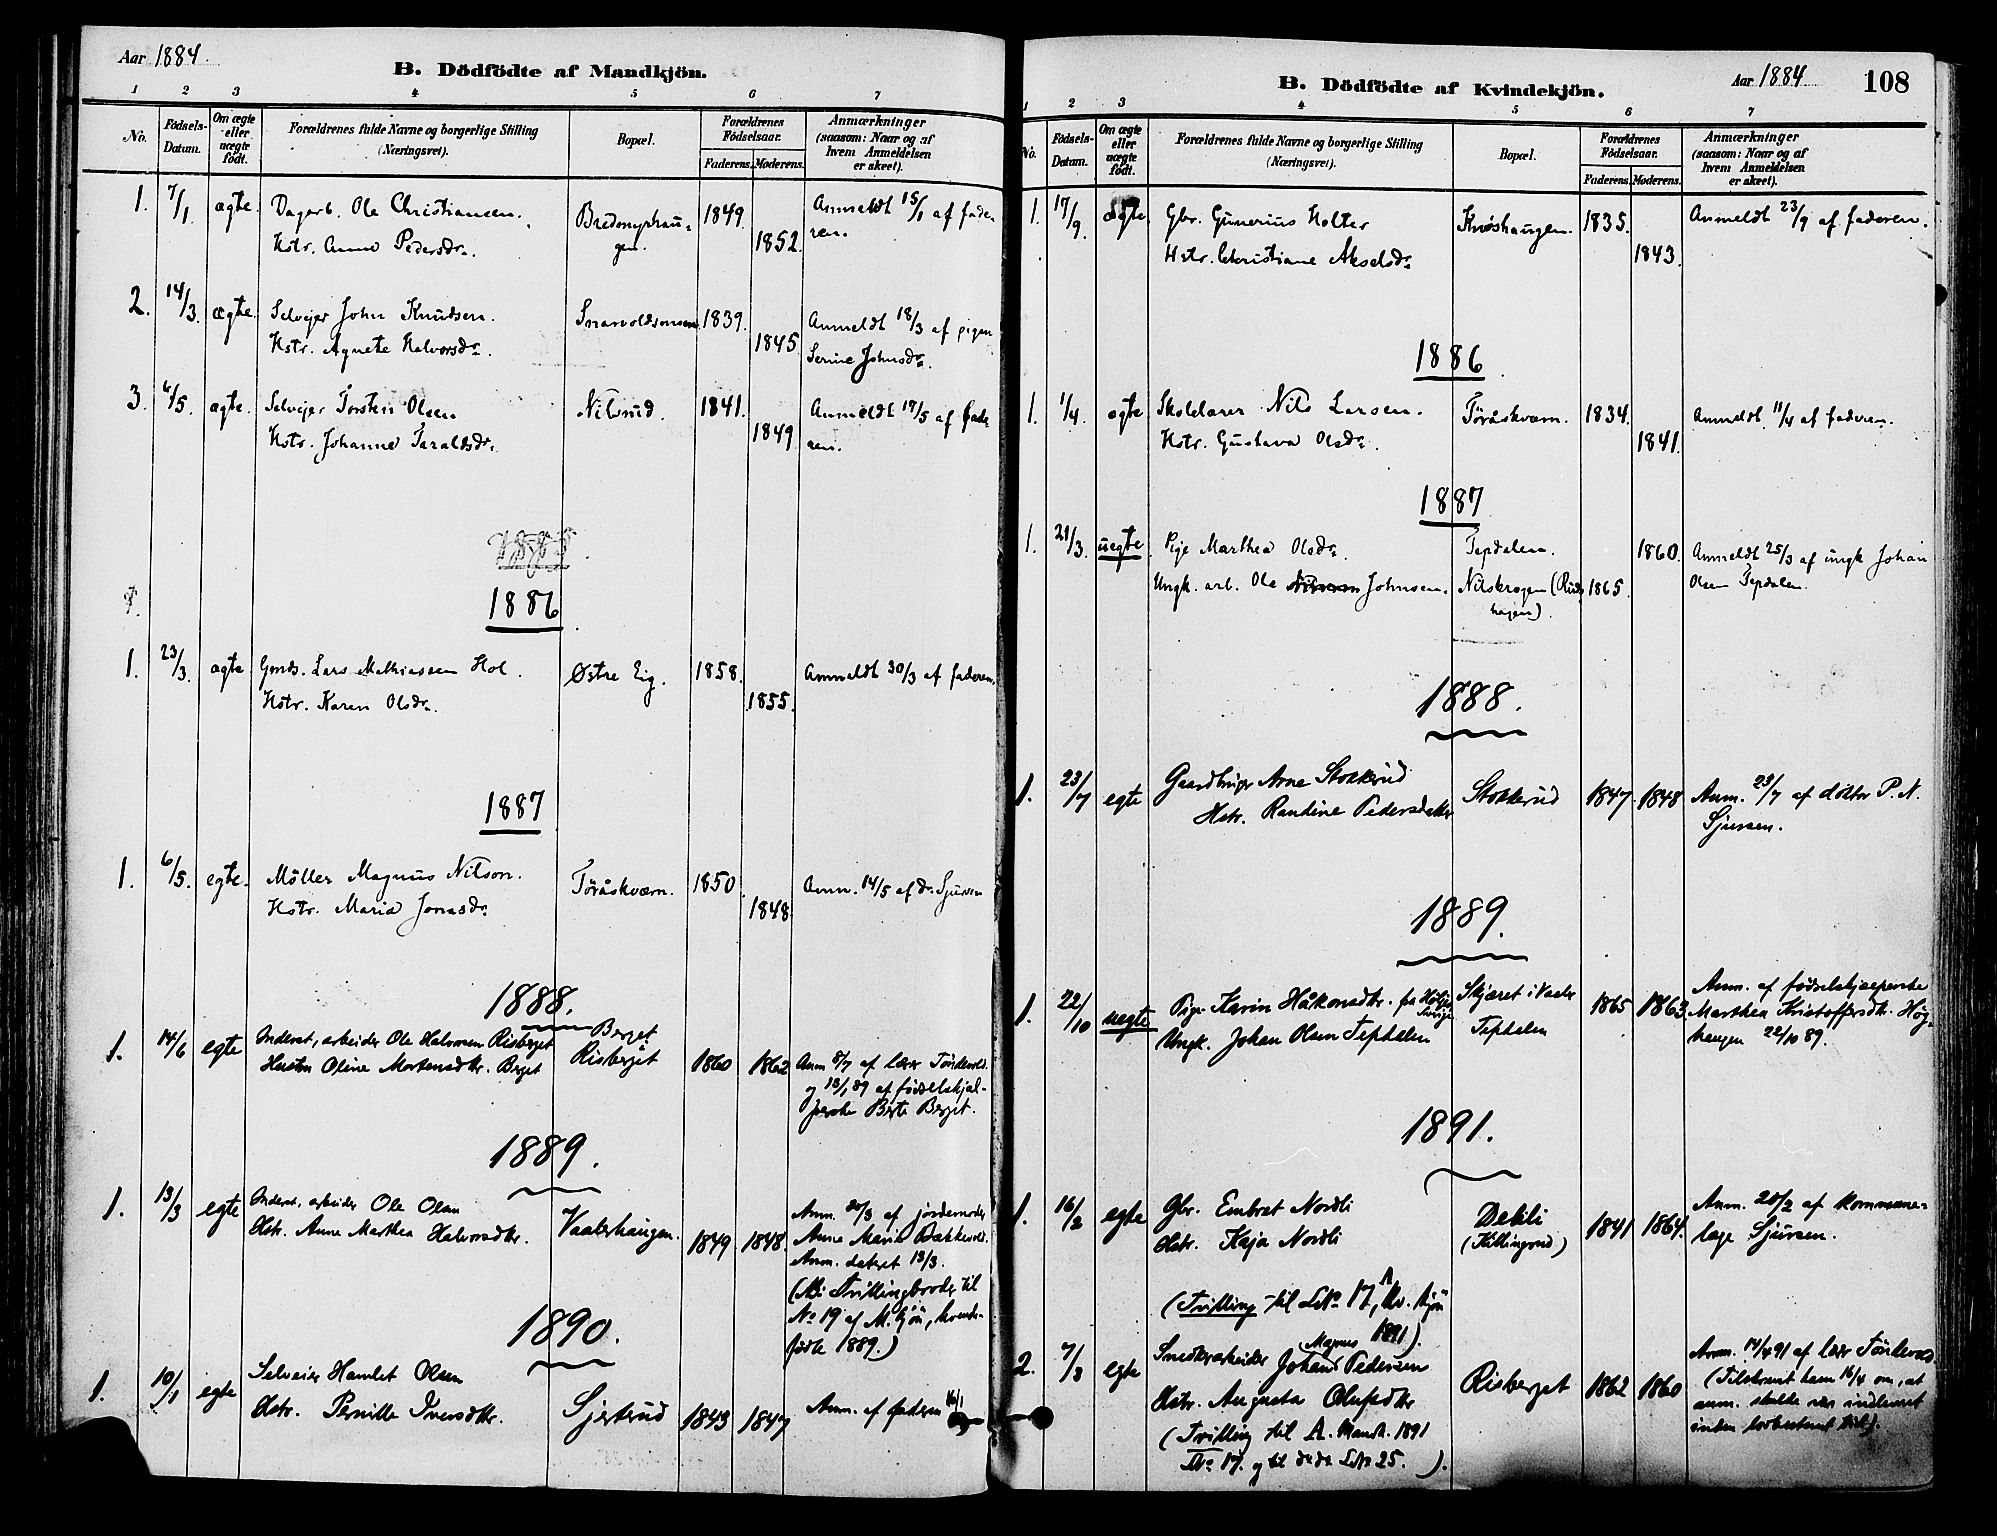 Aar 1884.
B. Dödfödte af Mandkjön.
1 2 3 4 5 6 7
No.
Födsels-
Datum.
Om ægte
eller
uægte
födt.
Forældrenes fulde Navne og borgerlige Stilling
(Næringsvei).
Bopæl.
Forældrenes
Födselsaar.
Faderens. Moderens.
Anmærkninger
(saasom: Naar og af
hvem Anmeldelsen
er skeet).
1. 7/1. ægte. Dagarb. Ole Christiansen. 1849. Anmeldt 15/1 af fade
Hstr. Anne Pedersdr. 1852. ren.
2. 14/3. ægte. Selvejer John Knudsen. 1839. Anmeldt 18/3 af pigen
Hstr. Agnete Halvorsdr. 1845 Serine Johnsdr.
3. 6/5. ægte. Selvejer Torsten Olsen Nilsrud. 1841. Anmeldt 19/5 af fade
Hstr. Johanne Taraldsdr. 1849 ren.
1885
1886
1. 23/3. ægte Gmds. Lars Mathiassen Hol. Østre Eig. 1858. Anmeldt 30/3 af faderen.
Hstr. Karen Olsdr. 1855.
1887
1. 6/5. egte. Möller Magnus Nilson. Töråskværn. 1850. Anm. 14/5 af dr. Sjursen
Hstr. Maria Jonasdr. 1848.
1888.
Berget
1. 14/6 egte Inderst, arbeider Ole Halvorsen Risberget Risberget 1860 1862 Anm 8/7 af lærer Töndevold.
Hustru Oline Mortensdtr. Berget og 13/1 89 af fødselshjæl-
perske Berte Berget.
1889.
1. 13/3 egte Inderst, arbeider Ole Olsen Vaalerhaugen. 1849 1848. Anm. 20/3 af jordemoder
Hstr. Anne Marthea Halvorsdtr. Anne Marie Bakkevold.
Anm. dateret 13/3.
(NB: Tvillingbroder til
No 19 af M. kjön, levende-
födte 1889.)
1890.
1. 10/1 egte Selveier Hamlet Olsen Sjerkrud 1843 1847 Anm. af faderen 16/1
Hstr. Pernille Iversdtr.
B. Dödfödte af Kvindekjön.
Aar 1884 108
1 2 3 4 5 6 7
No.
Födsels-
Datum.
Om ægte
eller
uægte
födt.
Forældrenes fulde Navne og borgerlige Stilling
(Næringsvei).
Bopæl.
Forældrenes
Födselsaar.
Faderens. Moderens.
Anmærkninger
(saasom: Naar og af
hvem Anmeldelsen
er skeet).
1. 17/9. ægte. Gbr. Gunerius Holter Knöshaugen. 1835. Anmeldt 23/9 af faderen.
Hstr. Christiane Akselsdr. 1843.
1886
1. 1/4. ægte Skolelærer Nils Larsen. Töråskværn. 1834. Anmeldt 11/4 af faderen.
Hstr. Gustava Olsdr. 1841.
1887
1. 21/3. uegte. Pige Marthea Olsdr. Tepdalen. 1860. Anmeldt 25/3 af ungk Johan
Ungk. arb. Ole Johnsen. Nilskrogen (Ruds 1865. Olsen Tepdalen.
hagen).
1888.
1. 23/7 egte Gaardbruger Arne Stokkerud Stokkerud 1847. 1848 Anm. 29/7 af doktor P. N.
Hstr. Randine Pedersdatter Sjursen.
1889.
1. 22/10 uegte Pige Karin Håkonsdtr. fra Höljes Skjæret i Vaaler 1865 1863. Anm. af fødselshjælperske
Sverige
Ungk. Johan Olsen Tepdalen Tepdalen Marthea Kristoffersdtr. Hög-
haugen 22/10 89.
1891.
1. 16/2 egte Gbr. Embret Nordli Dekli 1841 1864. Anm. 20/2 af kommune-
Hstr. Kaja Nordli (Killingrud) læge Sjursen.
(Tvilling til LNo 17, A Kv. kjön
1891).
2. 7/3 egte Snedkerarbeider Johan Magnus Pedersen Risberget 1862 1860 Anm. 14/4 91 af lærer Töndevold.
Hstr. Augusta Olufsdtr (Tilskrevet ham 16/4 om, at
(Tvilling til A. Mandk. 1891 anm. skulde vær indleveret
No 17. og til LNo 25.). inden lovbestemt tid).